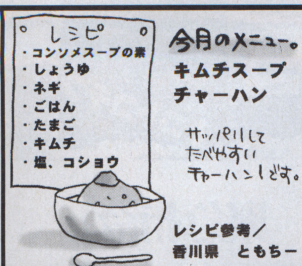 レシピ
・コンソメスープの素
・しょうゆ
・ネギ
・ごはん
・たまご
・キムチ
・塩、コショウ
今月のメニュー。
キムチスープ
チャーハン
サッパリして
たべやすい
チャーハンです。
レシピ参考／
香川県 ともちー